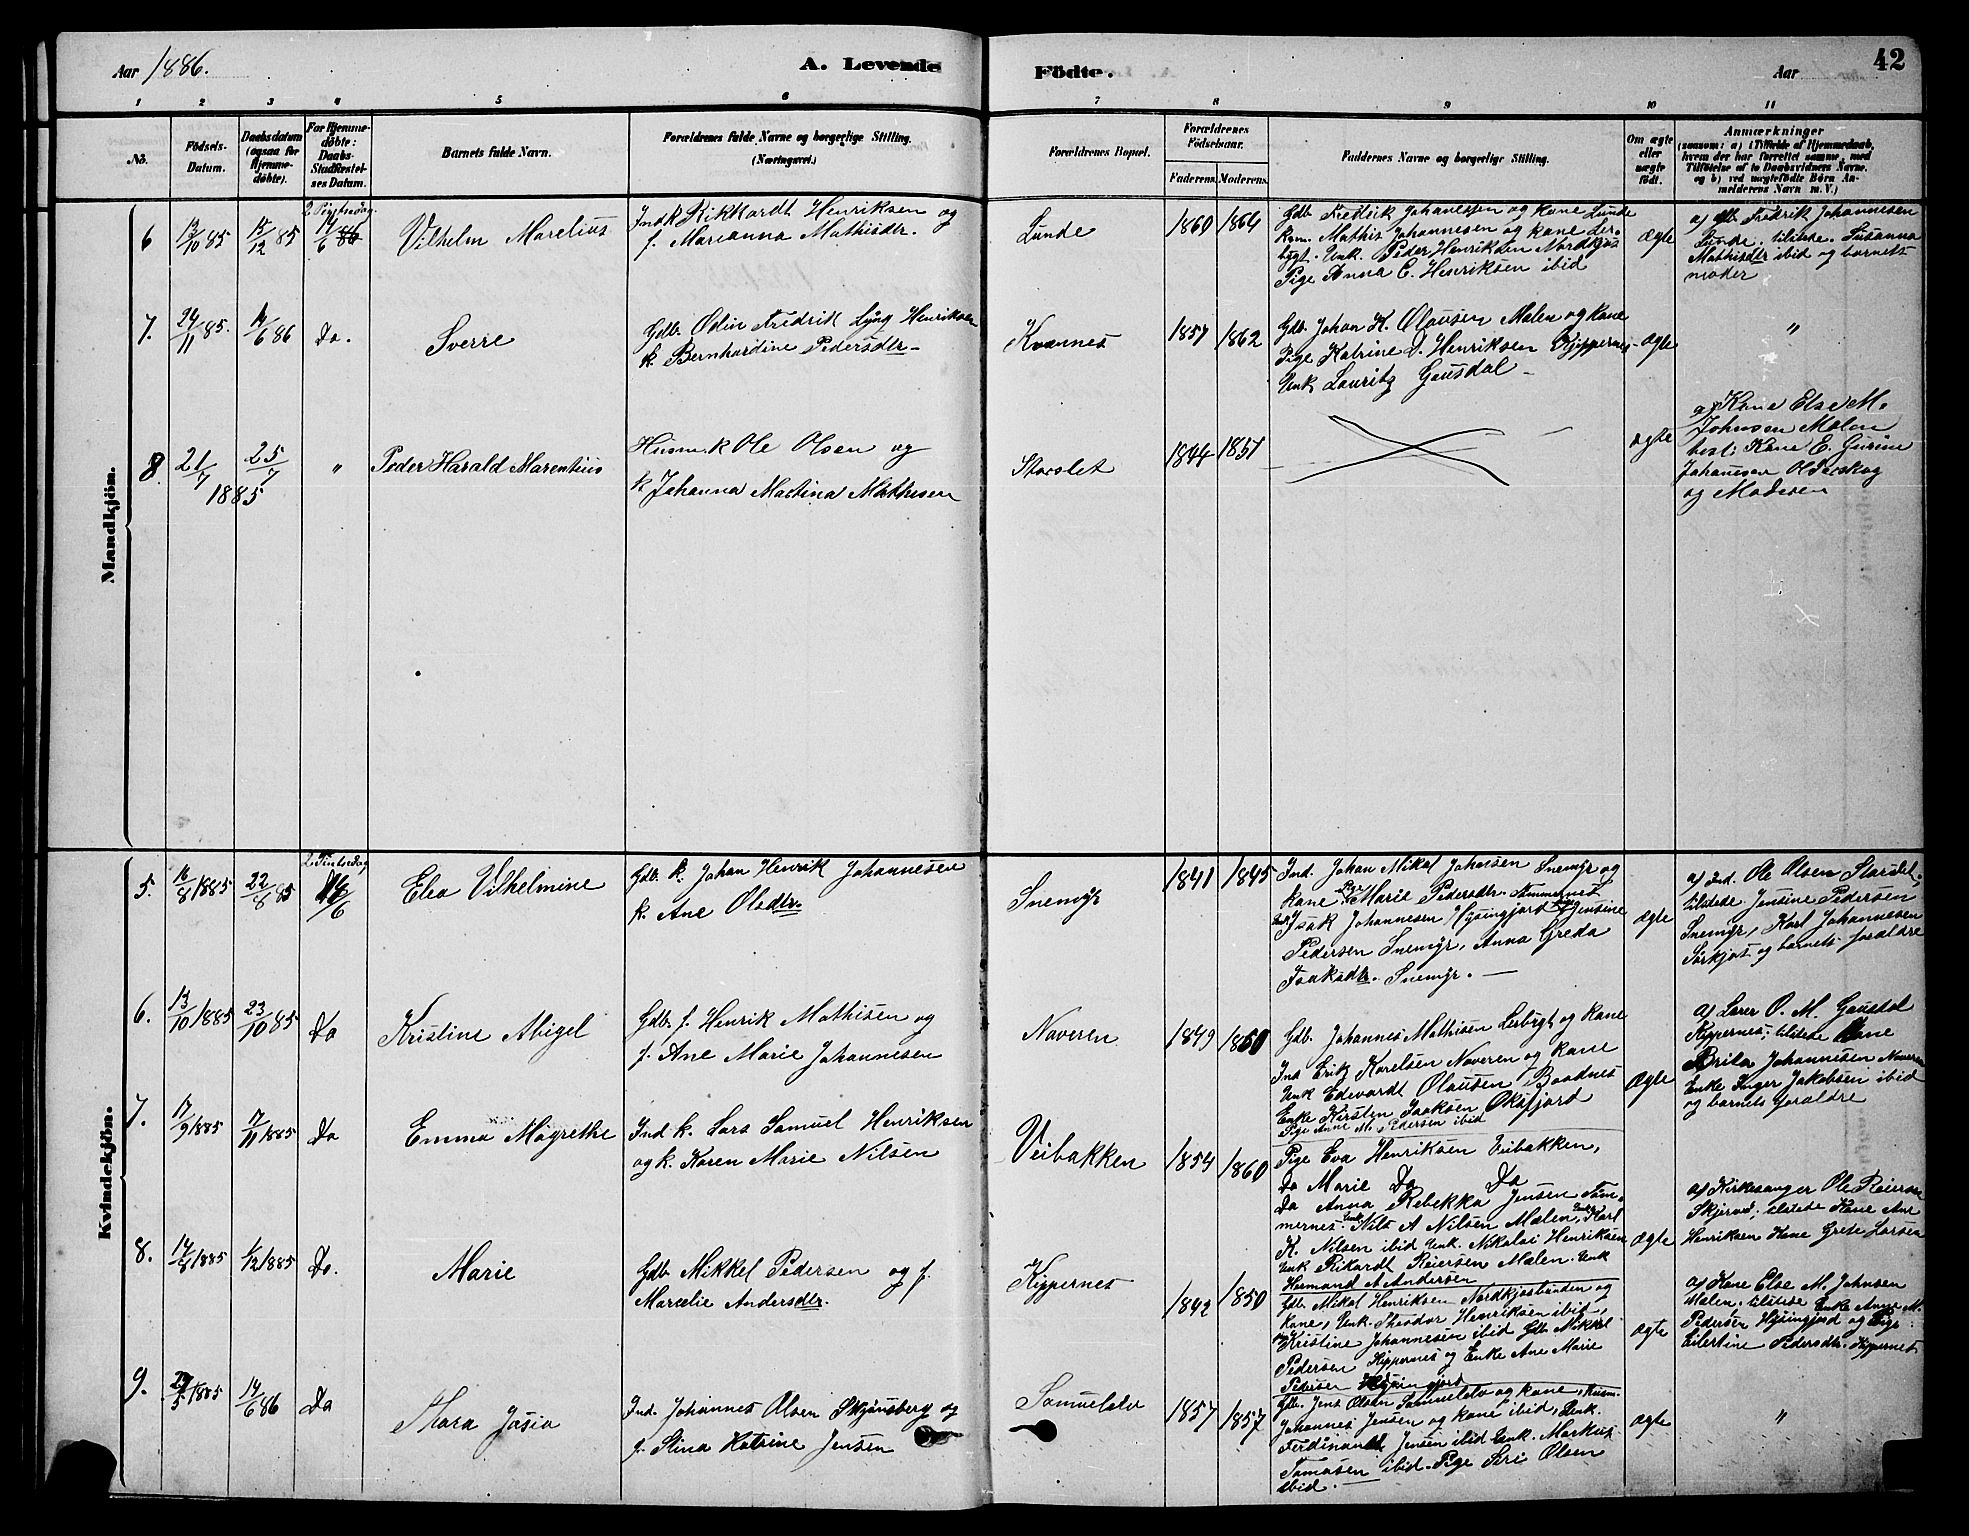 Aar 1886.
A. Levende
Födte.
Aar
42
1 2 3 4 5 6 7 8 9 10 11
No.
Födsels-
Datum.
Daabsdatum
(ogsaa for
Hjemme-
döbte).
For Hjemme-
döbte:
Daabs-
Stadfæstel-
ses Datum.
Barnets fulde Navn.
Forældrenes fulde Navne og borgerlige Stilling.
(Næringsvei.)
Forældrenes Bopæl.
Forældrenes
Födselsaar.
Faderens. Moderens.
Faddernes Navne og borgerlige Stilling.
Om ægte
eller
uægte
födt.
Anmærkninger
(saasom: a) i Tilfælde af Hjemmedaab,
hvem der har forrettet samme, med
Tilföielse af to Daabsvidners Navne,
og b) ved uægtefödte Börn An-
melderens Navn m. V.)
Mandkjön.
6
13/10 85
15/12 85
14/6 86
Vilhelm Marelius
Indk Rikkardt Henriksen og
f. Marianna Mathisdtr.
Lunde
1860
1864
Gdb. Fredrik Johanessen og kone Lunde
Mathis Johannesen og kone Ler-
bygt. Unk. Peder Henriksen Nordkjos
Pige Anna C. Henriksen ibid
Ægte
a) Gdb Fredrik Johannesen
Lunde. tilstede. Susanna
Mathisdtr ibid og barnets
moder
7.
24/11 85.
14/6 86
Do.
Sverre
Gdb. Odin Fredrik Lyng Henriksen
k. Bernhardine Pedersdtr
Kvannes
1857
1862
Gdb. Johan K. Olausen Malen og kone
Pige Katrine D. Henriksen Kjippernes
Unk Lauritz Gausdal
Ægte
"
8.
21/7
25/7
1885
"
Peder Harald Marentius
Husm. k Ole Olsen og
k Johanna Martina Mathisen
Storslet
1844
1851
ægte
a) Kone Else M.
Johnsen Malen
best: Kone E. Gurine
Johansen Olderskog
og Moderen
Kvindekjön.
5.
16/8 1885
22/8 85
14/6
Elea Vilhelmine
Gdb. k. Johan Henrik Johannesen
k. Ane Olsdtr.
Snemyr
1841
1845
Ind. Johan Mikal Johansen Snemyr og
kone Marie Pedersdtr. Stammernes
Isak Johannesen Jensine
Pedersen Snemyr, Anna Greda
Isaksdtr. Snemyr.
Ægte
a) Ind. Ole Olsen Storslet,
tilstede Jensine Pedersen
Snemyr, Karl Johannesen
Sørkjos og barnets forældre
6.
13/10 1885
23/10 85
Do
Kristine Abigel
Gdb. f. Henrik Mathisen og
f. Ane Marie Johannesen
Naveren
1849
1850
Gdb. Johannes Mathisen Lerbygt og kone
Ind Erik Karelsen Naveren og kone
Unk Edevardt Olausen Baadnes
Enke Kirsten Isaksen Oksfjord
Pige Anne M. Pedersen ibid
Ægte
a) Lærer O. M. Gausdal
Kippernes, tilstede Kone
Brita Johannesen Naveren
Enke Inger Jakobsen ibid
og barnets forældre
7.
17/9 1885
7/11 1885
Do
Emma Magrethe
Ind k. Lars Samuel Henriksen
og k. Karen Marie Nilsen
Veibakken
1854
1860
Pige Eva Henriksen Veibakken,
Do Marie Do Do
Do Anna Rebekka Jensen Tam-
mernes. Nils A Nilsen Malen, Karl
K. Nilsen ibid Unk. Nikolai Henriksen
Unk Rikardt Reiersen Malen. Unk
Hermand A Andersen
Ægte
a) Kirkesanger Ole Reiersen
Skjervø; tilstede Kone Ane
Henriksen Kone Grete Larsen
8.
1/12 1885
Do.
Marie
Gdb. Mikkel Pedersen og f.
Marcelie Andersdtr.
Kippernes
1842
1850
Gdb. Mikal Henriksen Nordkjosbunden og
kone, Unk. Theodor Henriksen ibid,
Kristine Johannesen ibid Gdb. Mikkel
Pedersen Kippernes og Enke Ane Marie
Pedersen
Ægte
a) Kone Else M. Johnsen
Malen. tilstede Enke Anne M.
Pedersen og Pige
Eilertine Pedersdtr. Kippernes
9.
14/6 86
Do
Mara Josia
Ind. Johannes Olsen Skjønsberg og
f. Stina Katrine Jensen
Samuelelv
1857
1857
Gdb. Jens Olsen Samuelelv og kone, Husm.
Johannes Jensen og kone ibid, Unk.
Ferdinand Jensen ibid Unk. Markus
Tomasen ibid. Pige Siri Olsen
ibid.
Ægte
"